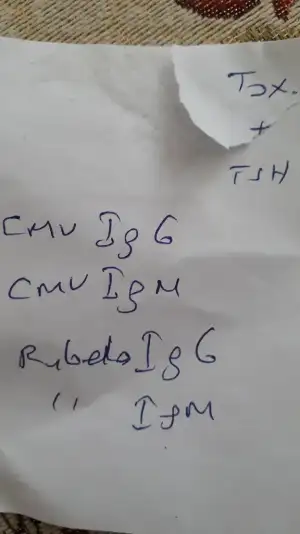 Tox.
+
TSH
CMV IgG
CMV IgM
Rubela IgG
" IgM